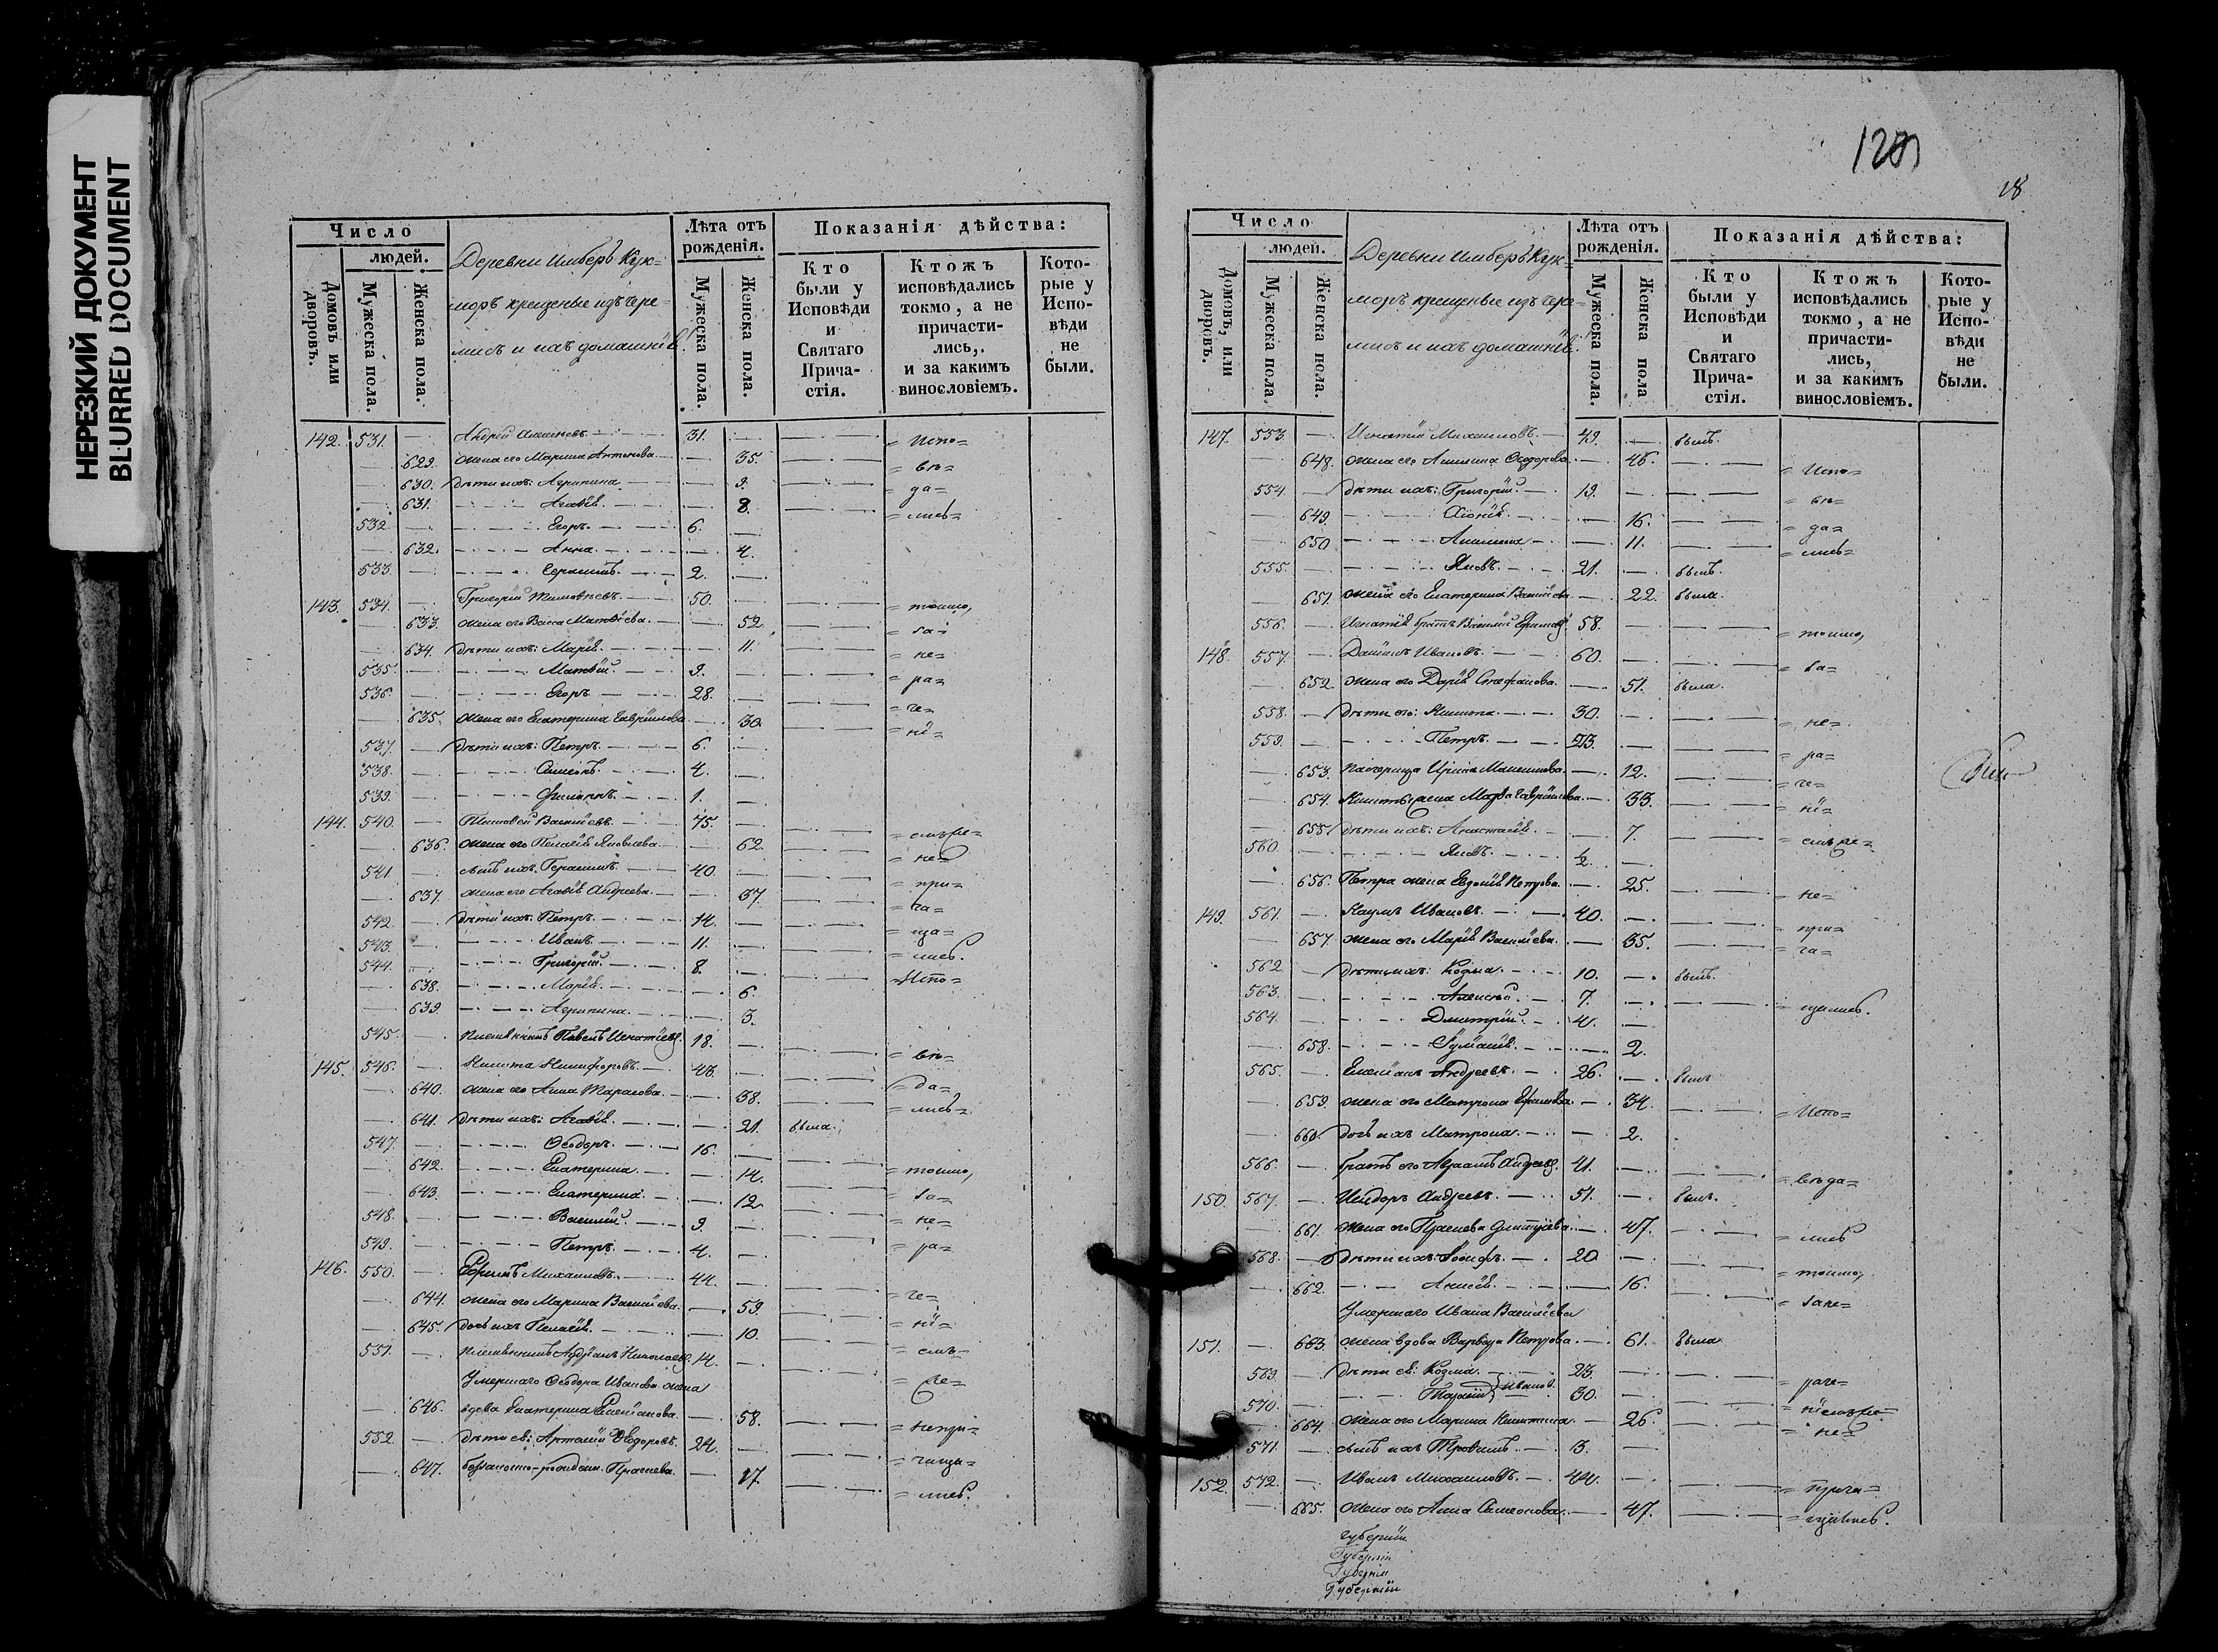 НЕРЕЗКИЙ ДОКУМЕНТ
BLURRED DOCUMENT
Число
людей.
Домовъ или дворовъ.
Мужеска пола.
Женска пола.
Деревни Имберъ Кук=
моръ крещеные изъ чере=
мисъ и ихъ домашнiе.
Лѣта отъ рожденiя.
Мужеска пола.
Женска пола.
Показанiя дѣйства:
Кто были у Исповѣди и Святаго Прича- стiя.
Ктожъ исповѣдались токмо, а не причасти- лись, и за какимъ винословiемъ.
Кото- рые у Испо- вѣди не были.
142. 531. Андрей 31. = испо=
629. жена его Марина Антонова 35. = вѣ=
630. дѣти ихъ: Агрипина 9. = да=
631. Агафiя 8. = лись=
532. Егоръ 6.
632. Анна 4.
533. Герасимъ 2.
143. 534. Григорiй Тимофѣевъ 50. = токмо,
633. жена его Васса Матвѣева 52. = за=
634. дѣти ихъ: Марiя 11. = не=
535. Матвѣй 9. = ра=
536. Егоръ 28. = че=
635. жена его Екатерина Гаврiилова 30. = нi=
537. дѣти ихъ: Петръ 6.
538. Симеонъ 4.
539. Филиппъ 1.
144. 540. Тимофей Васильевъ 75. = емъ же=
636. жена его Пелагiя Яковлева 62. = не=
541. сынъ ихъ Герасимъ 40. = при=
637. жена его Агафiя Андреева 37. = ча=
542. дѣти ихъ: Петръ 14. = ща=
543. Иванъ 11. = лись.
544. Григорiй 8.
638. Марiя 6. = Испо=
639. Агрипина 3.
545. племянникъ Павелъ Игнатiевъ 18. = вѣ=
145. 546. Никита Никифоровъ 48. = да=
640. жена его Анна Тарасова 38. = лись=
641. дѣти ихъ: Агафiя 21. была.
547. Ѳеодоръ 16.
642. Екатерина 14. = токмо,
643. Екатерина 12. = за=
548. Василiй 9. = не=
549. Петръ 4. = ра=
146. 550. Ефимъ Михаиловъ 44.
644. жена его Марина Васильева 59. = че=
645. дочь ихъ Пелагiя 10. = нi=
551. племянникъ Андрiанъ Николаевъ 14. = емъ=
Умершаго Ѳеодора Иванова жена = же=
646. вдова Екатерина Емелiанова 58. = непри=
552. дѣти ея: Артемiй Ѳеодоровъ 24. = чаща=
647. беззаконно-рожден. Прасковья 17. = лись.
18
Число
людей.
Домовъ, или дворовъ.
Мужеска пола.
Женска пола.
Деревни Имберъ Кук=
моръ крещеные изъ чере=
мисъ и ихъ домашнiе.
Лѣта отъ рожденiя.
Мужеска пола.
Женска пола
Показанiя дѣйства:
Кто были у Исповѣди и Святаго Прича- стiя.
Ктожъ исповѣдались токмо, а не причасти- лись, и за какимъ винословiемъ.
Кото- рые у Испо- вѣди не были.
147. 553. Игнатiй Михаиловъ 49. былъ.
648. жена его Акилина Ѳеодорова 46. = Испо=
554. дѣти ихъ: Григорiй 19. = вѣ=
649. Хiонiя 16. = да=
650. Акилина 11. = лись=
555. Яковъ 21. былъ.
651. жена его Екатерина Васильева 22. была.
556. Игнатiя братъ Василiй Ефимовъ 58. = токмо,
148. 557. Данiилъ Ивановъ 60. = за=
652. жена его Дарiя Стефанова 51. была.
558. дѣти его: Никита 30. = не=
559. Петръ 23. = ра=
653. падчерица Ирина Максимова 12. = че=
654. Никиты жена Марѳа Гаврiилова 33. = нi=
655. дѣти ихъ: Анастасiя 7. = емъ же=
560. Яковъ
656. Петра жена Евдокiя Петрова 25. = не=
149. 561. Наумъ Ивановъ 40. = при=
657. жена его Марiя Васильева 35. = ча=
562. дѣти ихъ: Козма 10. былъ.
563. Алексѣй 7. = щались.
564. Дмитрiй 4.
658. Iулiанiя 2.
565. Емелiанъ Андреевъ 26. былъ
659. жена его Матрона Ефимова 34. = Испо=
660. дочь ихъ Матрона 2.
566. братъ его Авраамъ Андреевъ 41. = вѣда=
150. 567. Исидоръ Андреевъ 51. былъ.
661. жена его Прасковья Дмитрiева 47. = лись
568. дѣти ихъ: Iосифъ 20. = токмо,
662. Анисiя 16. = зане=
Умершаго Ивана Васильева
151. 663. жена вдова Варвара Петрова 61. была
569. дѣти ея: Козма 23. = раче=
570. Тарасiй Ивановы 30. = нiемъ же=
664. жена его Марина Никитина 26. = не=
571. сынъ ихъ Трофимъ 3.
152. 572. Иванъ Михаиловъ 44. = прича=
665. жена его Анна Симеонова 47. = щались.
Губернiи
Губернiи
Губернiи
Губернiи